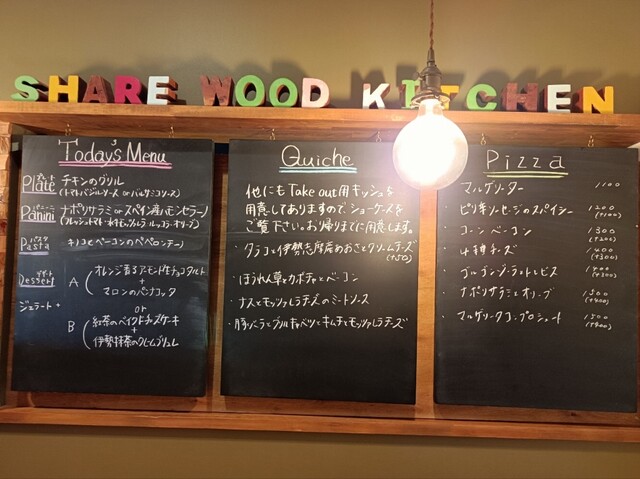 SHARE WOOD KITCHEN
Today's Menu
プレート
Plate チキンのグリル
(トマトバジルソース or バルサミコソース)
パニーニ
Panini ナポリサラミ or スペイン産ハモンセラーノ
(フレッシュトマト・水牛モッツァレラ・ルッコラ・オリーブ)
パスタ
Pasta キノコとベーコンのペペロンチーノ
デザート
Dessert A オレンジ香るアーモンド生チョコタルト
+
マロンのパンナコッタ
ジェラート +
or
B 紅茶のベイクドチーズケーキ
+
伊勢抹茶のクレームブリュレ
Quiche
他にも Take out用キッシュも
用意してありますので、ショーケースを
ご覧下さい。お帰りまでに用意します。
・タラコと伊勢志摩産あおさとクリームチーズ
(+50)
・ほうれん草とカボチャとベーコン
・ナスとモッツァレラチーズのミートソース
・豚バラとグリルキャベツとキムチとモッツァレラチーズ
Pizza
・マルゲリーター 1100
・ピリ辛ソーセージのスパイシー 1200
(+100)
・コーンベーコン 1300
(+200)
・4種チーズ 1400
(+300)
・ゴルゴンゾーラ 1400
(+300)
・ナポリサラミとオリーブ 1500
(+400)
・マルゲリータコンプロシュート 1500
(+400)